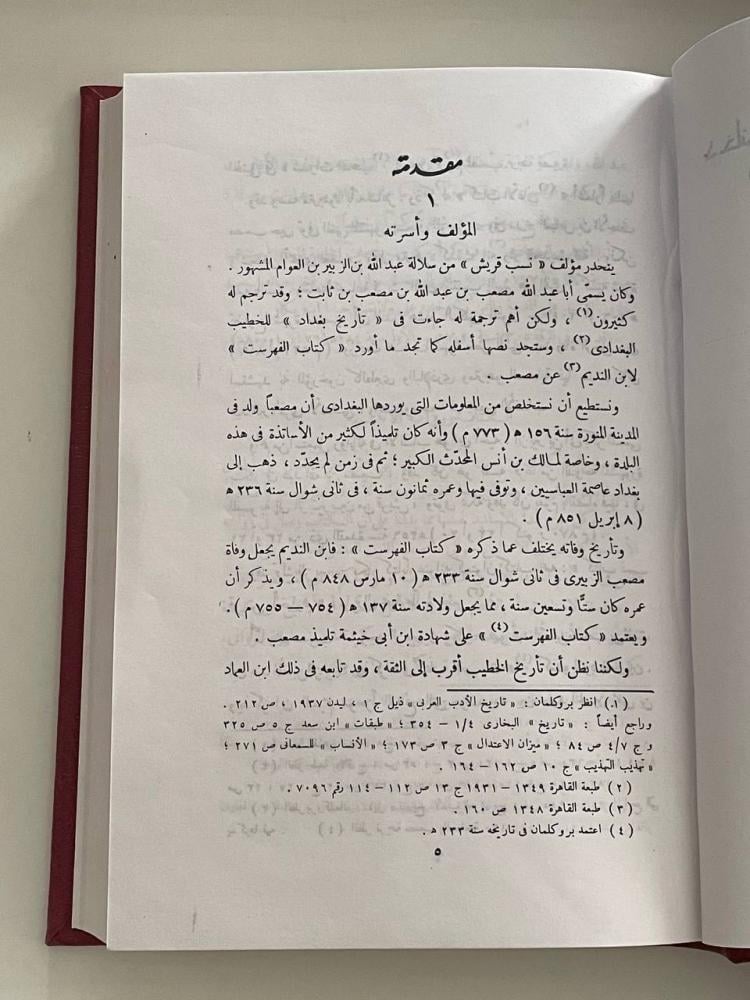 مقدمة
١
المؤلف وأسرته
ينحدر مؤلف « نسب قريش » من سلالة عبد الله بن الزبير بن العوام المشهور .
وكان يسمّى أبا عبد الله مصعب بن عبد الله بن مصعب بن ثابت ؛ وقد ترجم له
كثيرون(١) ، ولكن أهم ترجمة له جاءت فى « تأريخ بغداد » للخطيب
البغدادى(٢) ، وستجد نصها أسفله كما تجد ما أورد « كتاب الفهرست »
لابن النديم(٣) عن مصعب .
ونستطيع أن نستخلص من المعلومات التى يوردها البغدادى أن مصعباً ولد فى
المدينة المنورة سنة ١٥٦ ھ ( ٧٧٣ م ) وأنه كان تلميذاً لكثير من الأساتذة فى هذه
البلدة ، وخاصة لمالك بن أنس المحدّث الكبير ؛ ثم فى زمن لم يحدّد ، ذهب إلى
بغداد عاصمة العباسيين ، وتوفى فيها وعمره ثمانون سنة ، فى ثانى شوال سنة ٢٣٦ ھ
( ٨ إبريل ٨٥١ م ) .
وتأريخ وفاته يختلف عما ذكره « كتاب الفهرست » : فابن النديم يجعل وفاة
مصعب الزبيرى فى ثانى شوال سنة ٢٣٣ ھ ( ١٠ مارس ٨٤٨ م ) ، ويذكر أن
عمره كان ستًّا وتسعين سنة ، مما يجعل ولادته سنة ١٣٧ ھ ( ٧٥٤ — ٧٥٥ م ) .
ويعتمد « كتاب الفهرست(٤) » على شهادة ابن أبى خيثمة تلميذ مصعب .
ولكننا نظن أن تأريخ الخطيب أقرب إلى الثقة ، وقد تابعه فى ذلك ابن العماد
(١.) انظر بروكلمان : « تاريخ الأدب العربى » ذيل ج ١ ، ليدن ١٩٣٧ ، ص ٢١٢ .
وراجع أيضاً : « تاريخ » البخارى ١/٤ – ٣٥٤ ؛ « طبقات » ابن سعد ج ٥ ص ٣٢٥
و ج ٤/٧ ص ٨٤ ؛ « ميزان الاعتدال » ج ٣ ص ١٧٣ ؛ « الأنساب » للسمعانى ص ٢٧١ ؛
« تهذيب التهذيب » ج ١٠ ص ١٦٢ – ١٦٤ .
(٢) طبعة القاهرة ١٣٤٩ – ١٩٣١ ج ١٣ ص ١١٢ – ١١٤ رقم ٧٠٩٦ .
(٣) طبعة القاهرة ١٣٤٨ ص ١٦٠ .
(٤) اعتمد بروكلمان فى تاريخه سنة ٢٣٣ ھ .
٥